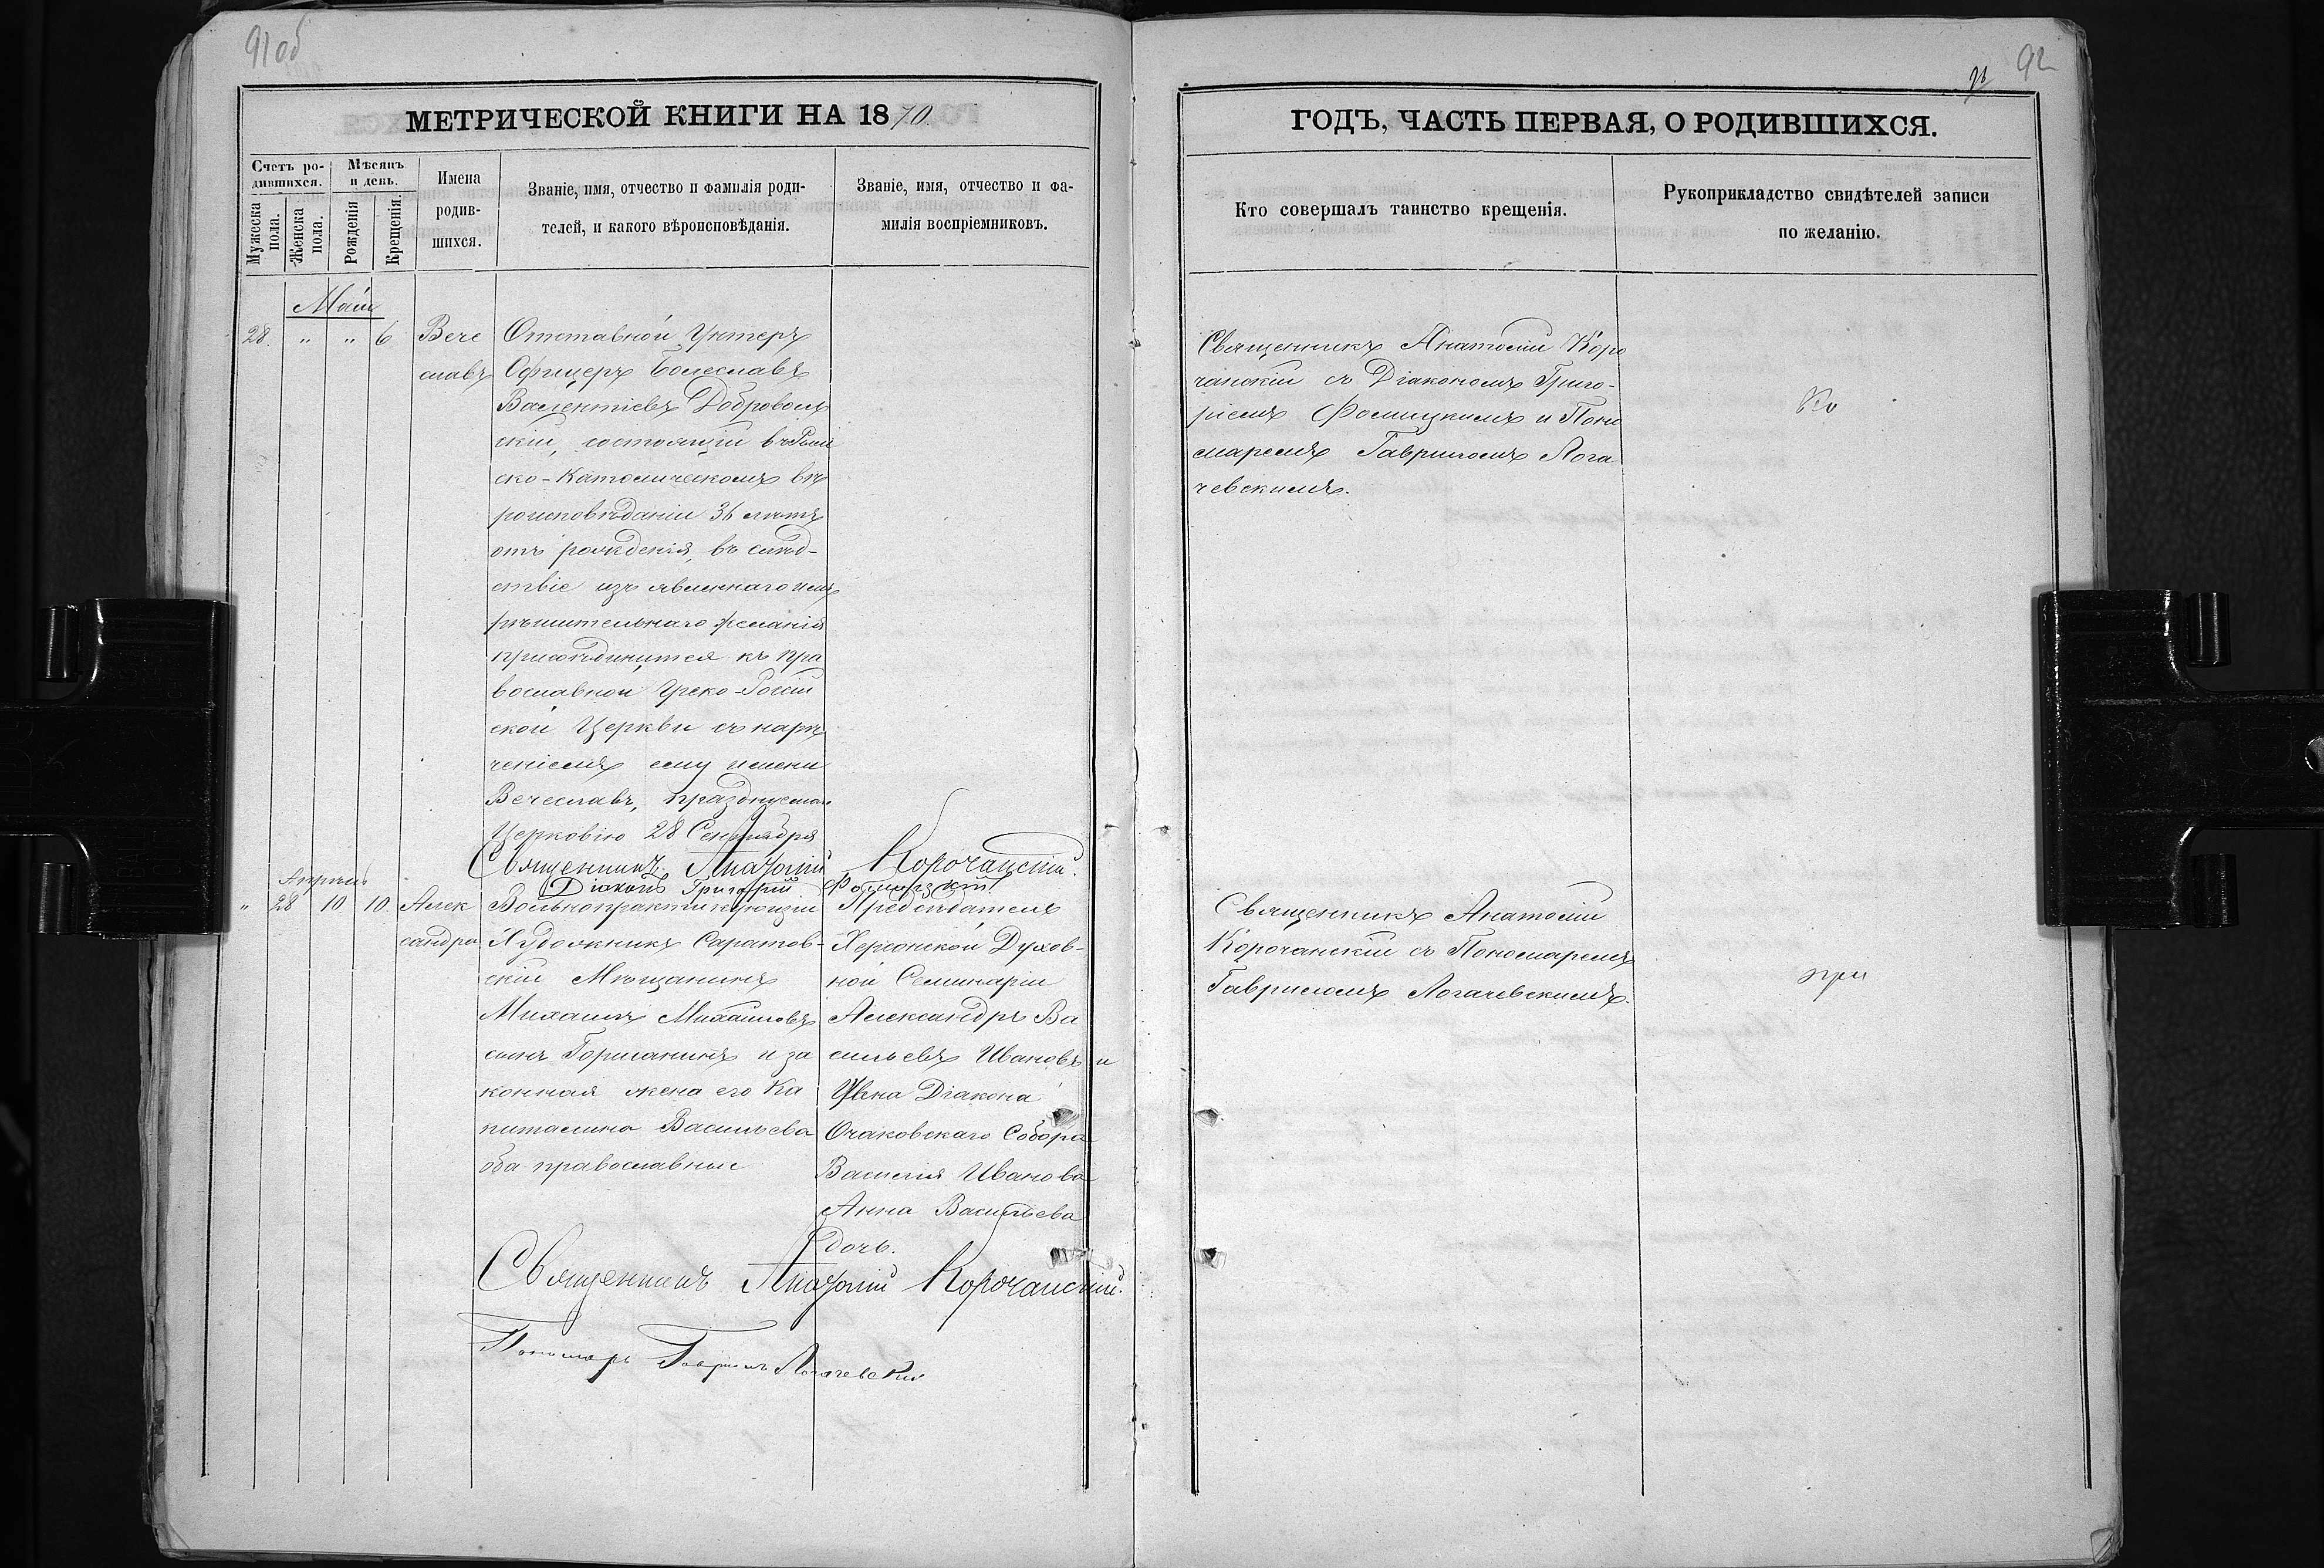 91об
92
МЕТРИЧЕСКОЙ КНИГИ НА 1870.
Счетъ ро-
дившихся.
Мѣсяцъ
и день.
Мужеска
пола.
Женска
пола.
Рожденія
Крещенія.
Имена
родив-
шихся.
Званіе, имя, отчество и фамилія роди-
телей, и какого вѣроисповѣданія.
Званіе, имя, отчество и фа-
милія воспріемниковъ.
Маія
28. " " 6
Вече
славъ
Отставной Унтеръ
Офицеръ Болеславъ
Валентіевъ Доброволь
скій, состоящій въ Рим
ско-Католическомъ вѣ
роисповѣданіи 36 лѣтъ
отъ рожденія, въ слѣд-
ствіе изъявленнаго имъ
рѣшительнаго желанія
присоединится къ Пра
вославной Греко-Россій
ской Церкви съ наре
ченіемъ ему имени
Вечеславъ, празднуемаго
Церковію 28 Сентября
Священникъ Анатолій Корочанскій.
Діаконъ Григорій Фомицкій
Апрѣль
" 28 10 10.
Алек
сандра
Вольнопрактикующій
Художникъ Саратов-
скій Мѣщанинъ
Михаилъ Михаиловъ
сынъ Горшанинъ и за
конная жена его Ка
питалина Васильева
оба православные
Предсѣдатель
Херсонской Духов-
ной Семинаріи
Александръ Ва
сильевъ Ивановъ и
Діакона
Очаковскаго Собора
Василія Иванова
Анна Васильева
дочь.
Священникъ Анатолій Корочанскій.
Пономарь Гавриилъ Логачевскій
ГОДЪ, ЧАСТЬ ПЕРВАЯ, О РОДИВШИХСЯ.
Кто совершалъ таинство крещенія.
Рукоприкладство свидѣтелей записи
по желанію.
Священникъ Анатолій Коро
чанскій съ Діакономъ Григо-
ріемъ Фомицкимъ и Поно
маремъ Гавриломъ Лога
чевскимъ.
Ко
Священникъ Анатолій
Корочанскій съ Пономаремъ
Гавриломъ Логачевскимъ.
при